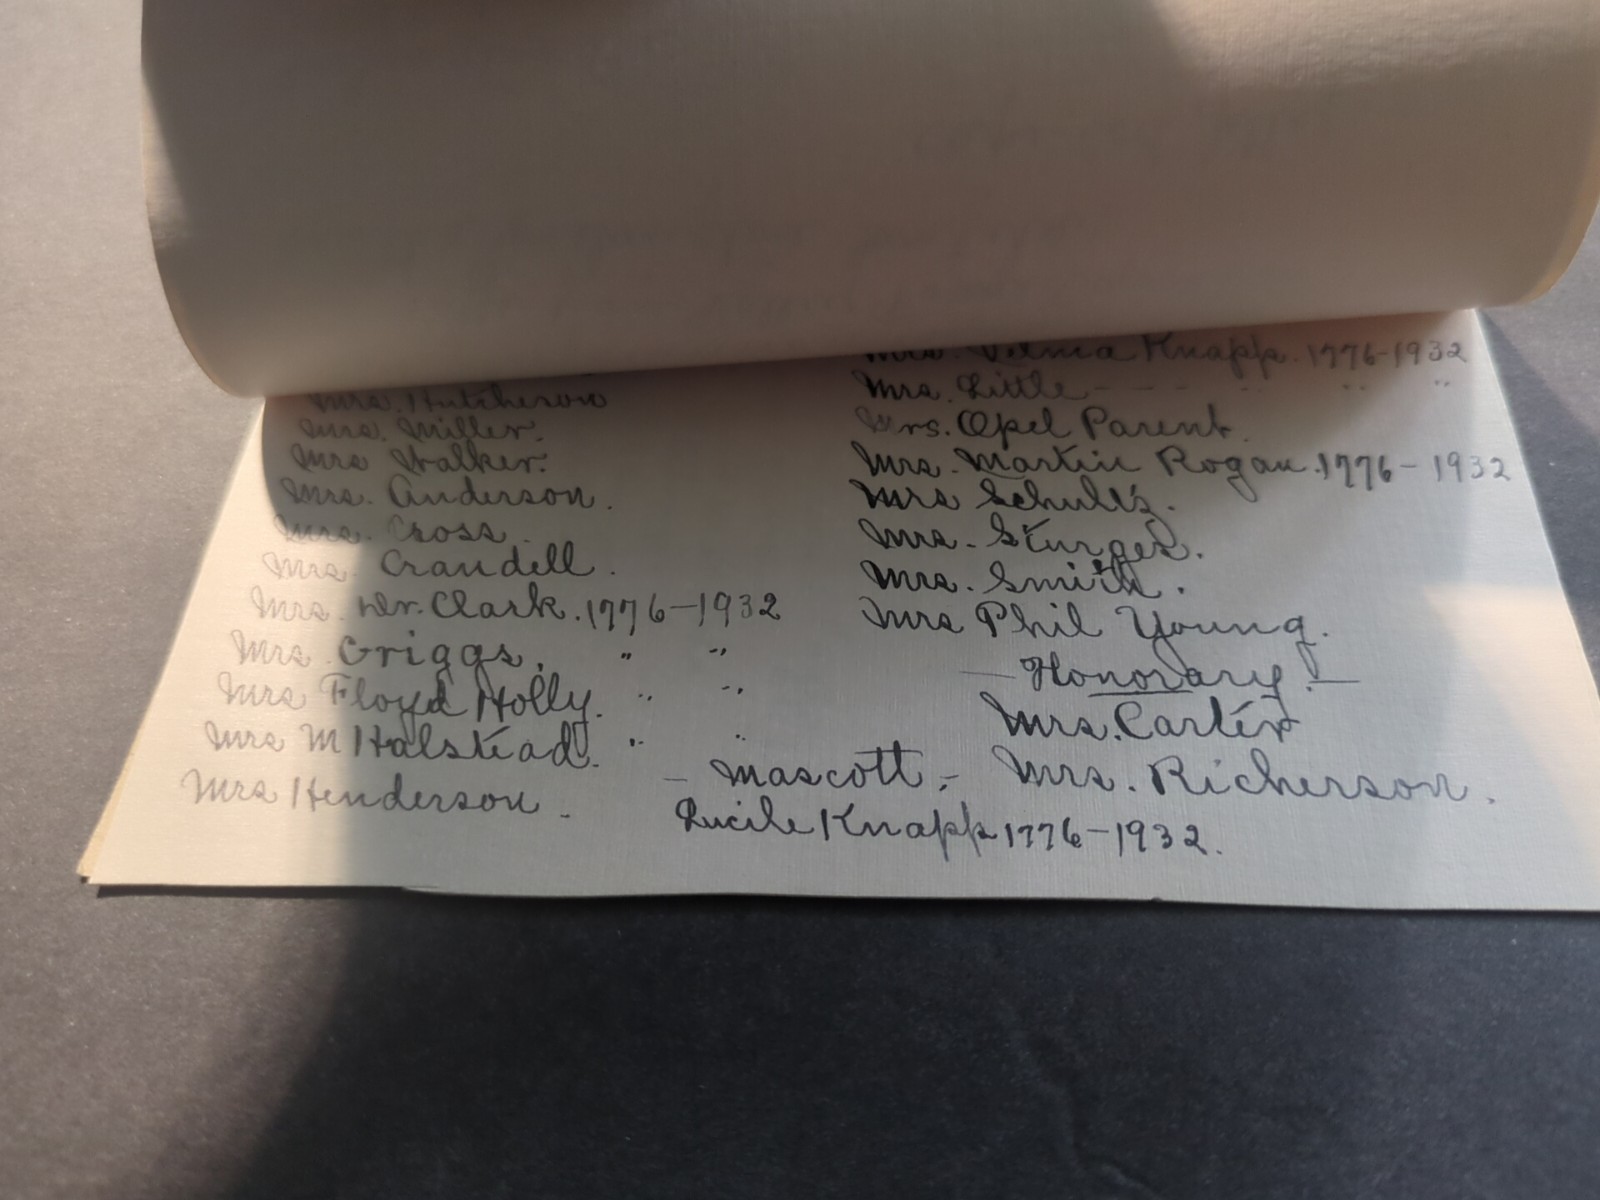 Mrs. Hutcherson
Mrs. Miller.
Mrs Walker.
Mrs. Anderson.
Mrs. Cross.
Mrs. Crandell.
Mrs. Dr. Clark. 1776-1932
Mrs. Griggs. " "
Mrs Floyd Holly. " "
Mrs M Halstead. " "
Mrs Henderson.
Mrs. Velma Knapp. 1776-1932
Mrs. Little - - - " " "
Mrs. Opel Parent.
Mrs. Martin Rogan. 1776-1932
Mrs Schultz.
Mrs. Sturges.
Mrs. Smith.
Mrs Phil Young.
- Honorary. -
Mrs. Carter
Mrs. Richerson.
- Mascott, -
Lucile Knapp 1776-1932.